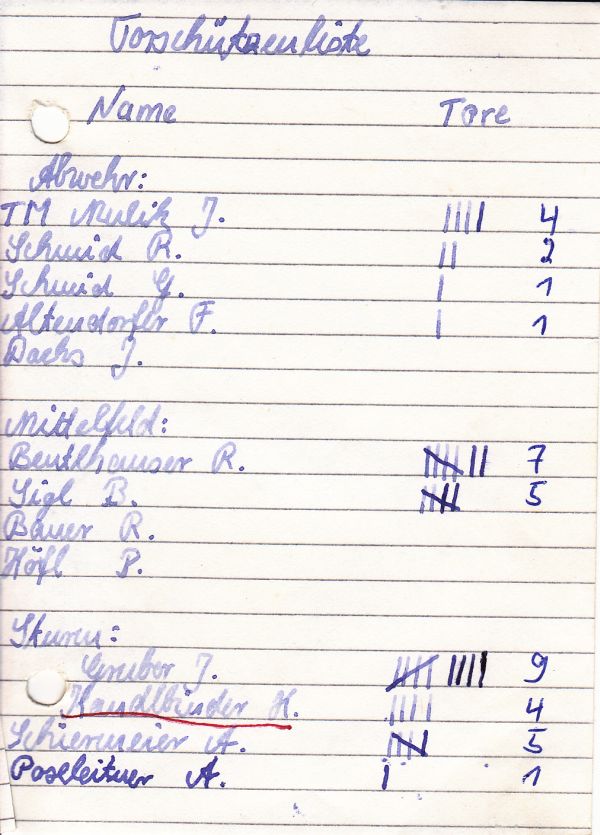 Torschützenliste
Name Tore
Abwehr:
TM Mulik J. |||| 4
Schmid R. || 2
Schmid G. | 1
Altendorfer F. | 1
Dachs J.
Mittelfeld:
Beutlhauser R. |||| || 7
Sigl B. |||| 5
Bauer R.
Höfl P.
Sturm:
Gruber J. |||| |||| 9
Kandlbinder H. |||| 4
Schiermeier A. |||| 5
Poxleitner A. | 1